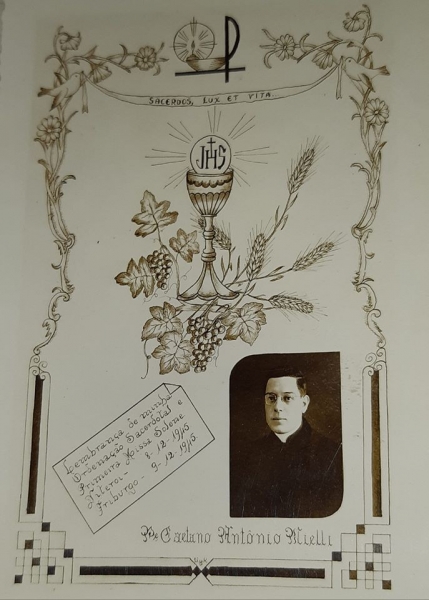 SACERDOS, LUX ET VITA
JHS
Lembrança de minha
Ordenação Sacerdotal e
Primeira Missa Solene
Niteroi - 8-12-1915
Friburgo - 9-12-1915
Pe Caetano Antônio Mielli